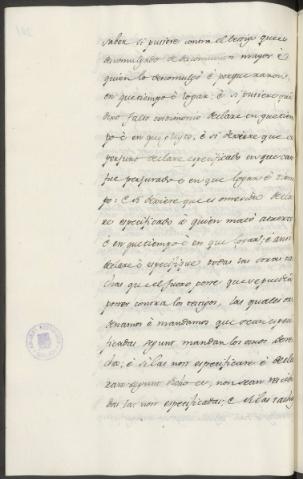 saber si pusiere contra el testigo que es
descomulgado de descomunion mayor é
quien lo descomulgó é porque razon é
en que tiempo é logar, é si pusiere que
dixo falso testimonio declare en que tiem
po é en que pleyto, é si dixiere que es
perjuro declare especificado en que caso
fue perjurado é en que logar é tiem
po: E si dixiere que es omecida decla
re especificado á quien mató
é en que tiempo é en que logar; é ansi
declare é especifique todas las otras ta
chas que el fuero pone que se pueden
poner contra los testigos, las quales or
denamos é mandamos que sean especi
ficadas segunt mandan los
cho, é si las non especificare é decla
rare segunt dicho es, non sean rescibi
das las non especificadas; E si las tachas